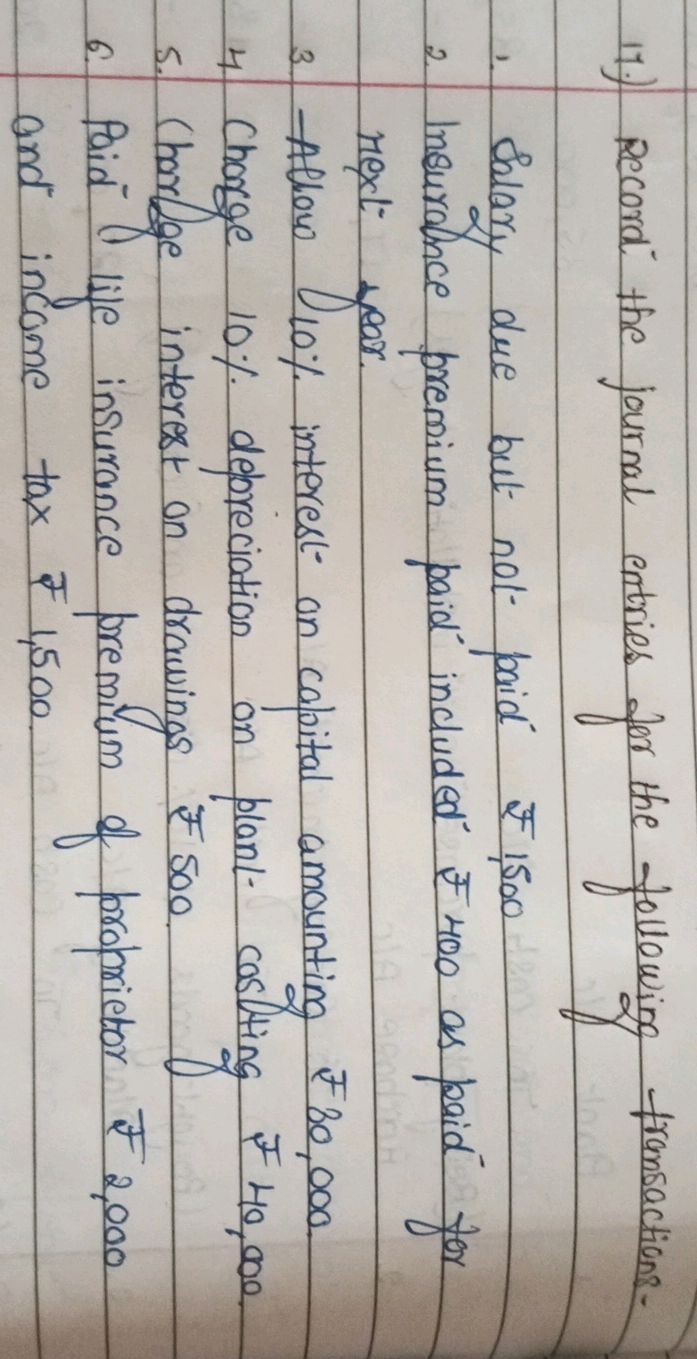 17.) Record the journal entries for the following transactions-
1. Salary due but not paid ₹ 1,500
2. Insurance premium paid included ₹ 400 as paid for
next year.
3 Allow 10% interest on capital amounting ₹ 30,000.
4 Charge 10% depreciation on plant costing ₹ 40,000.
5. Charge interest on drawings ₹ 500.
6. Paid life insurance premium of proprietor ₹ 2,000
and income tax ₹ 1,500.